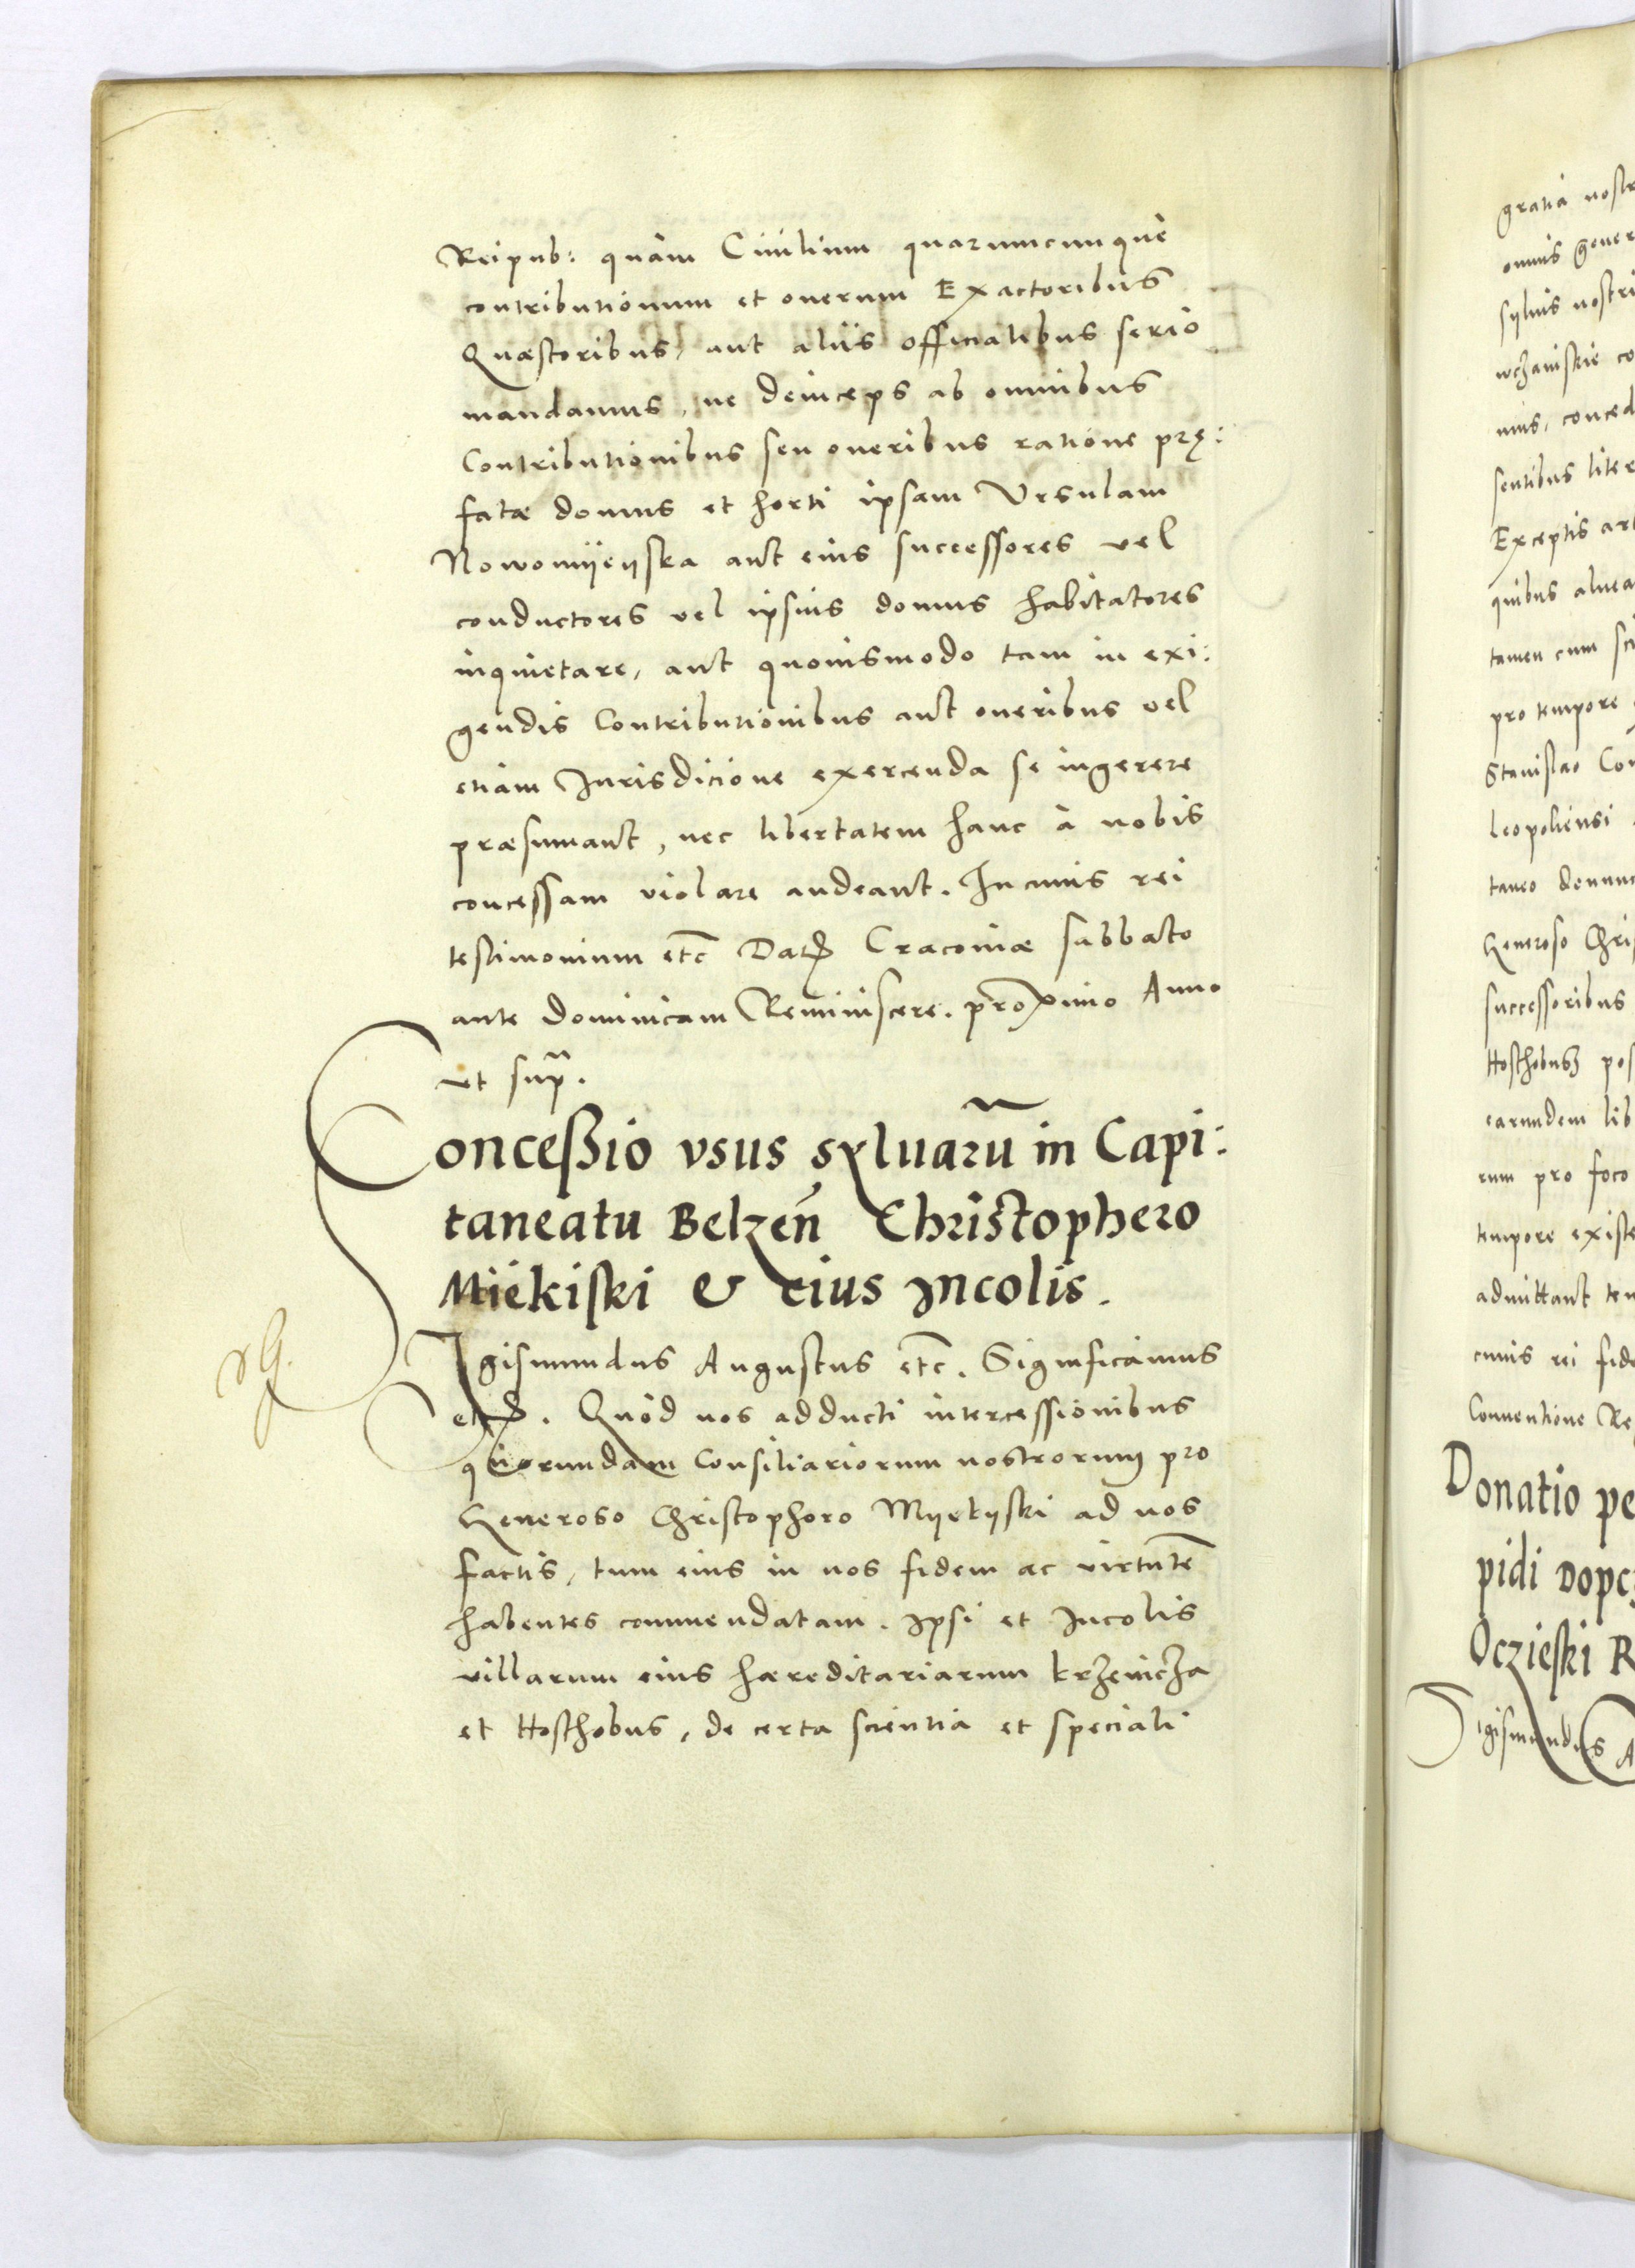 Reipub: quàm Ciuilium quarumcunque
contributionum et onerum Exactoribus
Quæstoribus, aut aliis officialibus serio
mandamus, ne deinceps ab omnibus
Contributionibus seu oneribus ratione prę:
fatæ domus et horti ipsam Vrsulam
Nowomyeyska aut eius successores vel
conductores vel ipsius domus habitatores
inquietare, aut quouismodo tam in exi:
gendis Contributionibus aut oneribus vel
etiam Jurisdicione exercenda se ingerere
præsumant, nec libertatem hanc à nobis
concessam violare audeant. In cuius rei
testimonium etc Dat Cracouiæ sabbato
ante dominicam Reminiscere. proximo Anno
vt sup.
Conceßio vsus syluarū in Capi:
taneatu Belzeñ Christophero
Miękiski & eius Incolis.
Sigismundus Augustus etc. Significamus
etc. Quòd nos adducti intercessionibus
quorundam Consiliariorum nostrorum pro
Generoso Christophoro Myekyski ad nos
factis, tum eius in nos fidem ac virtutē
habentes commendatam. Ipsi et Incolis
villarum eius hæreditariarum krzewicza
et Hosthobus, de certa scientia et speciali
gratia nostr
omnis gener
syluis nostri
mus, conced
sentibus liter
Exceptis ar
quibus aluea
tamen cum sci
pro tempore
Stanislao Co
leopoliensi
taneo
Generoso Chri
successoribus
Hosthobusz pos
earundem lib
rum pro foco
tempore existe
admittant te
cuius rei fide
Conuentione Re
Donatio pe
pidi Dopcz
Oczieski R
Sigismundus A